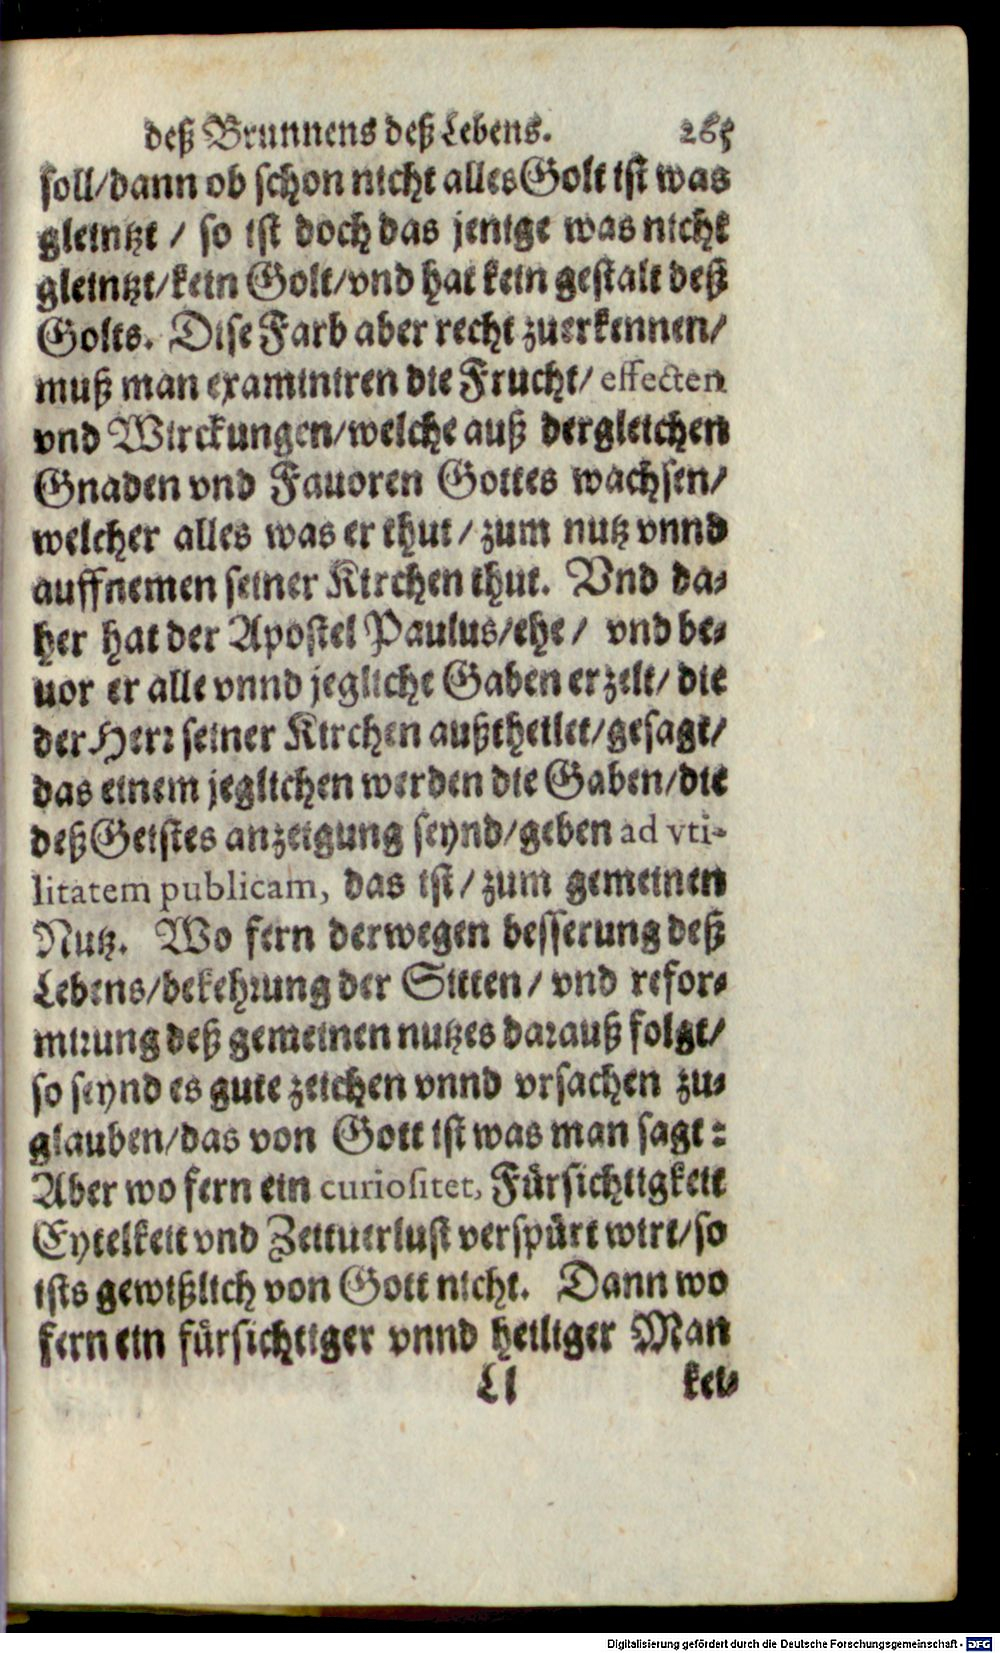 deß Brunnens deß Lebens. 265
soll/dann ob schon nicht alles Golt ist was
gleintzt / so ist doch das jenige was nicht
gleintzt/kein Golt/vnd hat kein gestalt deß
Golts. Dise Farb aber recht zuerkennen/
muß man examiniren die Frucht/ effecten
vnd Wirckungen/welche auß dergleichen
Gnaden vnd Fauoren Gottes wachsen/
welcher alles was er thut / zum nutz vnnd
auffnemen seiner Kirchen thut. Vnd da-
her hat der Apostel Paulus/ehe / vnd be-
uor er alle vnnd jegliche Gaben erzelt/ die
der Herr seiner Kirchen außtheilet/gesagt/
das einem jeglichen werden die Gaben/die
deß Geistes anzeigung seynd/geben ad vti-
litatem publicam, das ist / zum gemeinen
Nutz. Wo fern derwegen besserung deß
Lebens/bekehrung der Sitten/ vnd refor-
mirung deß gemeinen nutzes darauß folgt/
so seynd es gute zeichen vnnd vrsachen zu-
glauben/das von Gott ist was man sagt:
Aber wo fern ein curiositet, Fürsichtigkeit
Eytelkeit vnd Zeituerlust verspürt wirt/so
ists gewißlich von Gott nicht. Dann wo
fern ein fürsichtiger vnnd heiliger Man
Ll kei-
Digitalisierung gefördert durch die Deutsche Forschungsgemeinschaft - DFG